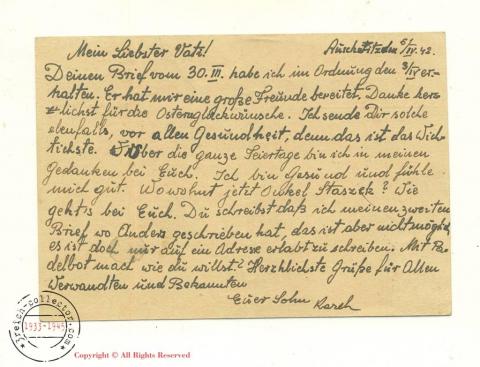 Mein Liebster Vatz!
Auschwitz den 5/IV. 42.
Deinen Brief vom 30. III. habe ich im Ordnung den 3/IV er-
halten. Er hat mir eine große Freunde bereitet. Danke herz-
lichst für die Osternglückwünsche. Ich sende Dir solche
ebenfalls, vor allen Gesundheit, denn das ist das Wich-
tichste. Über die ganze Feiertage bin ich in meinen
Gedanken bei Euch. Ich bin Gesund und fühle
mich gut. Wo wohnt jetzt Onkel Staszek? Wie
geht's bei Euch. Du schreibst daß ich meinen zweiten
Brief wo Anders geschrieben hat, das ist aber nicht möglich,
es ist doch nur auf ein Adrese erlabt zu schreiben. Mit
mach wie du willst? Herzhlichste Grüße für Allen
Verwandten und Bekannten
Euer Sohn
3reich-collector.com
1933-1945
Copyright © All Rights Reserved